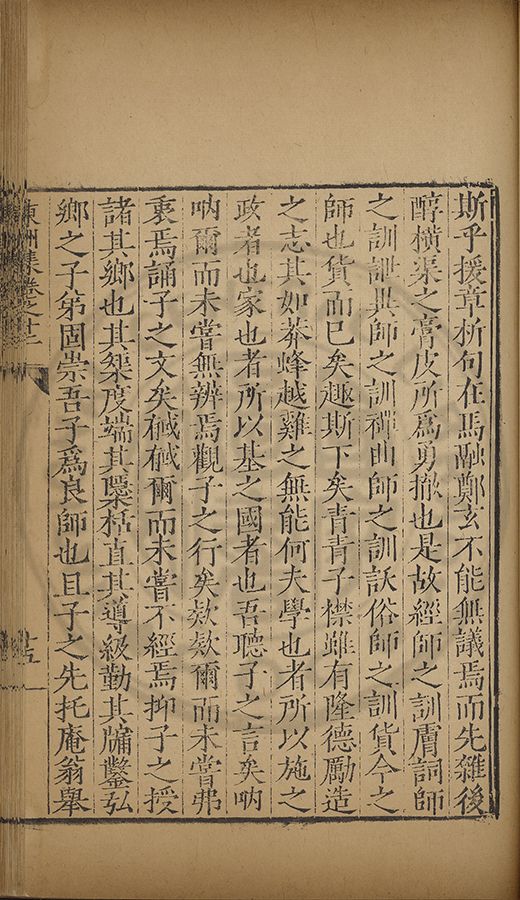 斯乎援章析句在馬融鄭玄不能無議焉而先雜後
醇橫渠之膏皮所爲勇撤也是故經師之訓膚詞師
之訓訿異師之訓禪曲師之訓訞俗師之訓貨今之
師也貨而已矣趣斯下矣青青子襟雖有隆德勵造
之志其如莾蜂越雞之無能何夫學也者所以施之
政者也家也者所以基之國者也吾聽子之言矣吶
吶爾而未嘗無辨焉觀子之行矣欻欻爾而未嘗弗
衷焉誦子之文矣䃘䃘爾而未嘗不經焉抑子之授
諸其鄉也其榘度端其隱栝直其導級勤其牖鑿弘
鄉之子弟固崇吾子爲良師也且子之先托庵翁舉
東洲集卷之十二
十五